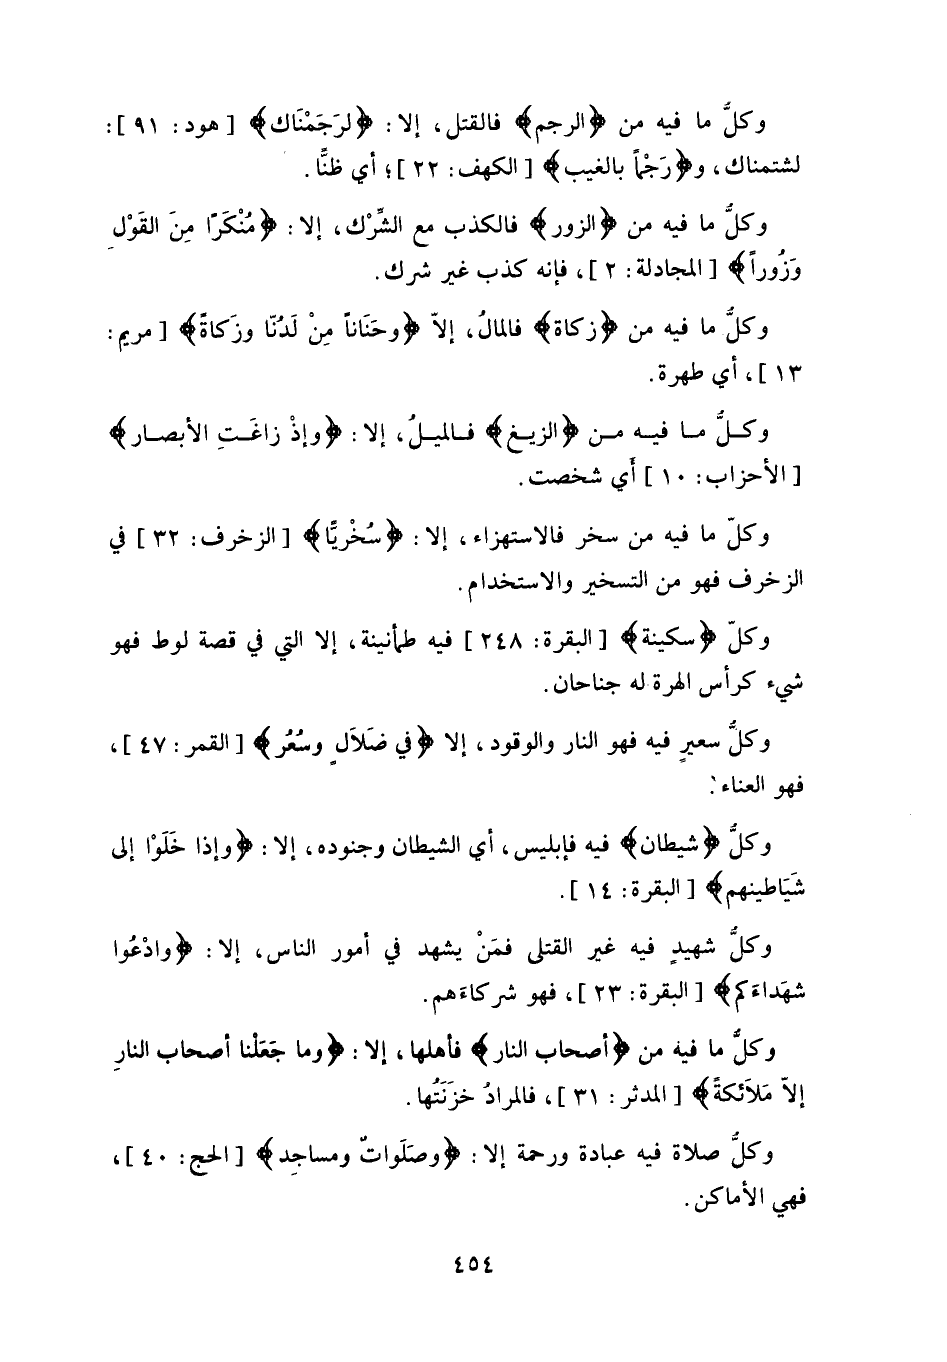 وكلُّ ما فيه من ﴿الرجم﴾ فالقتل، إلا: ﴿لرَجَمْنَاك﴾ [هود: ٩١]:
لشتمناك، و﴿رَجْماً بالغيب﴾ [الكهف: ٢٢]؛ أي ظنًّا.
وكلُّ ما فيه من ﴿الزور﴾ فالكذب مع الشِّرْك، إلا: ﴿مُنْكَرًا مِنَ القَوْلِ
وَزُوراً﴾ [المجادلة: ٢]، فإنه كذب غير شرك.
وكلُّ ما فيه من ﴿زكاة﴾ فالمالُ، إلاّ ﴿وحَنَاناً مِنْ لَدُنّا وزَكاةً﴾ [مريم:
١٣]، أي طهرة.
وكلُّ ما فيه من ﴿الزيغ﴾ فالميلُ، إلا: ﴿وإذْ زاغَتِ الأبصار﴾
[الأحزاب: ١٠] أي شخصت.
وكلّ ما فيه من سخر فالاستهزاء، إلا: ﴿سُخْريًّا﴾ [الزخرف: ٣٢] في
الزخرف فهو من التسخير والاستخدام.
وكلّ ﴿سكينة﴾ [البقرة: ٢٤٨] فيه طمأنينة، إلا التي في قصة لوط فهو
شيء كرأس الهرة له جناحان.
وكلُّ سعيرٍ فيه فهو النار والوقود، إلا ﴿في ضَلاَلٍ وسُعُر﴾ [القمر: ٤٧]،
فهو العناء.
وكلُّ ﴿شيطان﴾ فيه فإبليس، أي الشيطان وجنوده، إلا: ﴿وإذا خَلَوْا إلى
شَيَاطينهم﴾ [البقرة: ١٤].
وكلُّ شهيدٍ فيه غير القتلى فمَنْ يشهد في أمور الناس، إلا: ﴿وادْعُوا
شهَداءَكم﴾ [البقرة: ٢٣]، فهو شركاءَهم.
وكلُّ ما فيه من ﴿أصحاب النار﴾ فأهلها، إلا: ﴿وما جَعَلْنا أصحاب النارِ
إلاّ مَلاَئكةً﴾ [المدثر: ٣١]، فالمرادُ خزَنَتُها.
وكلُّ صلاة فيه عبادة ورحمة إلا: ﴿وصَلَواتٌ ومساجِد﴾ [الحج: ٤٠]،
فهي الأماكن.
٤٥٤